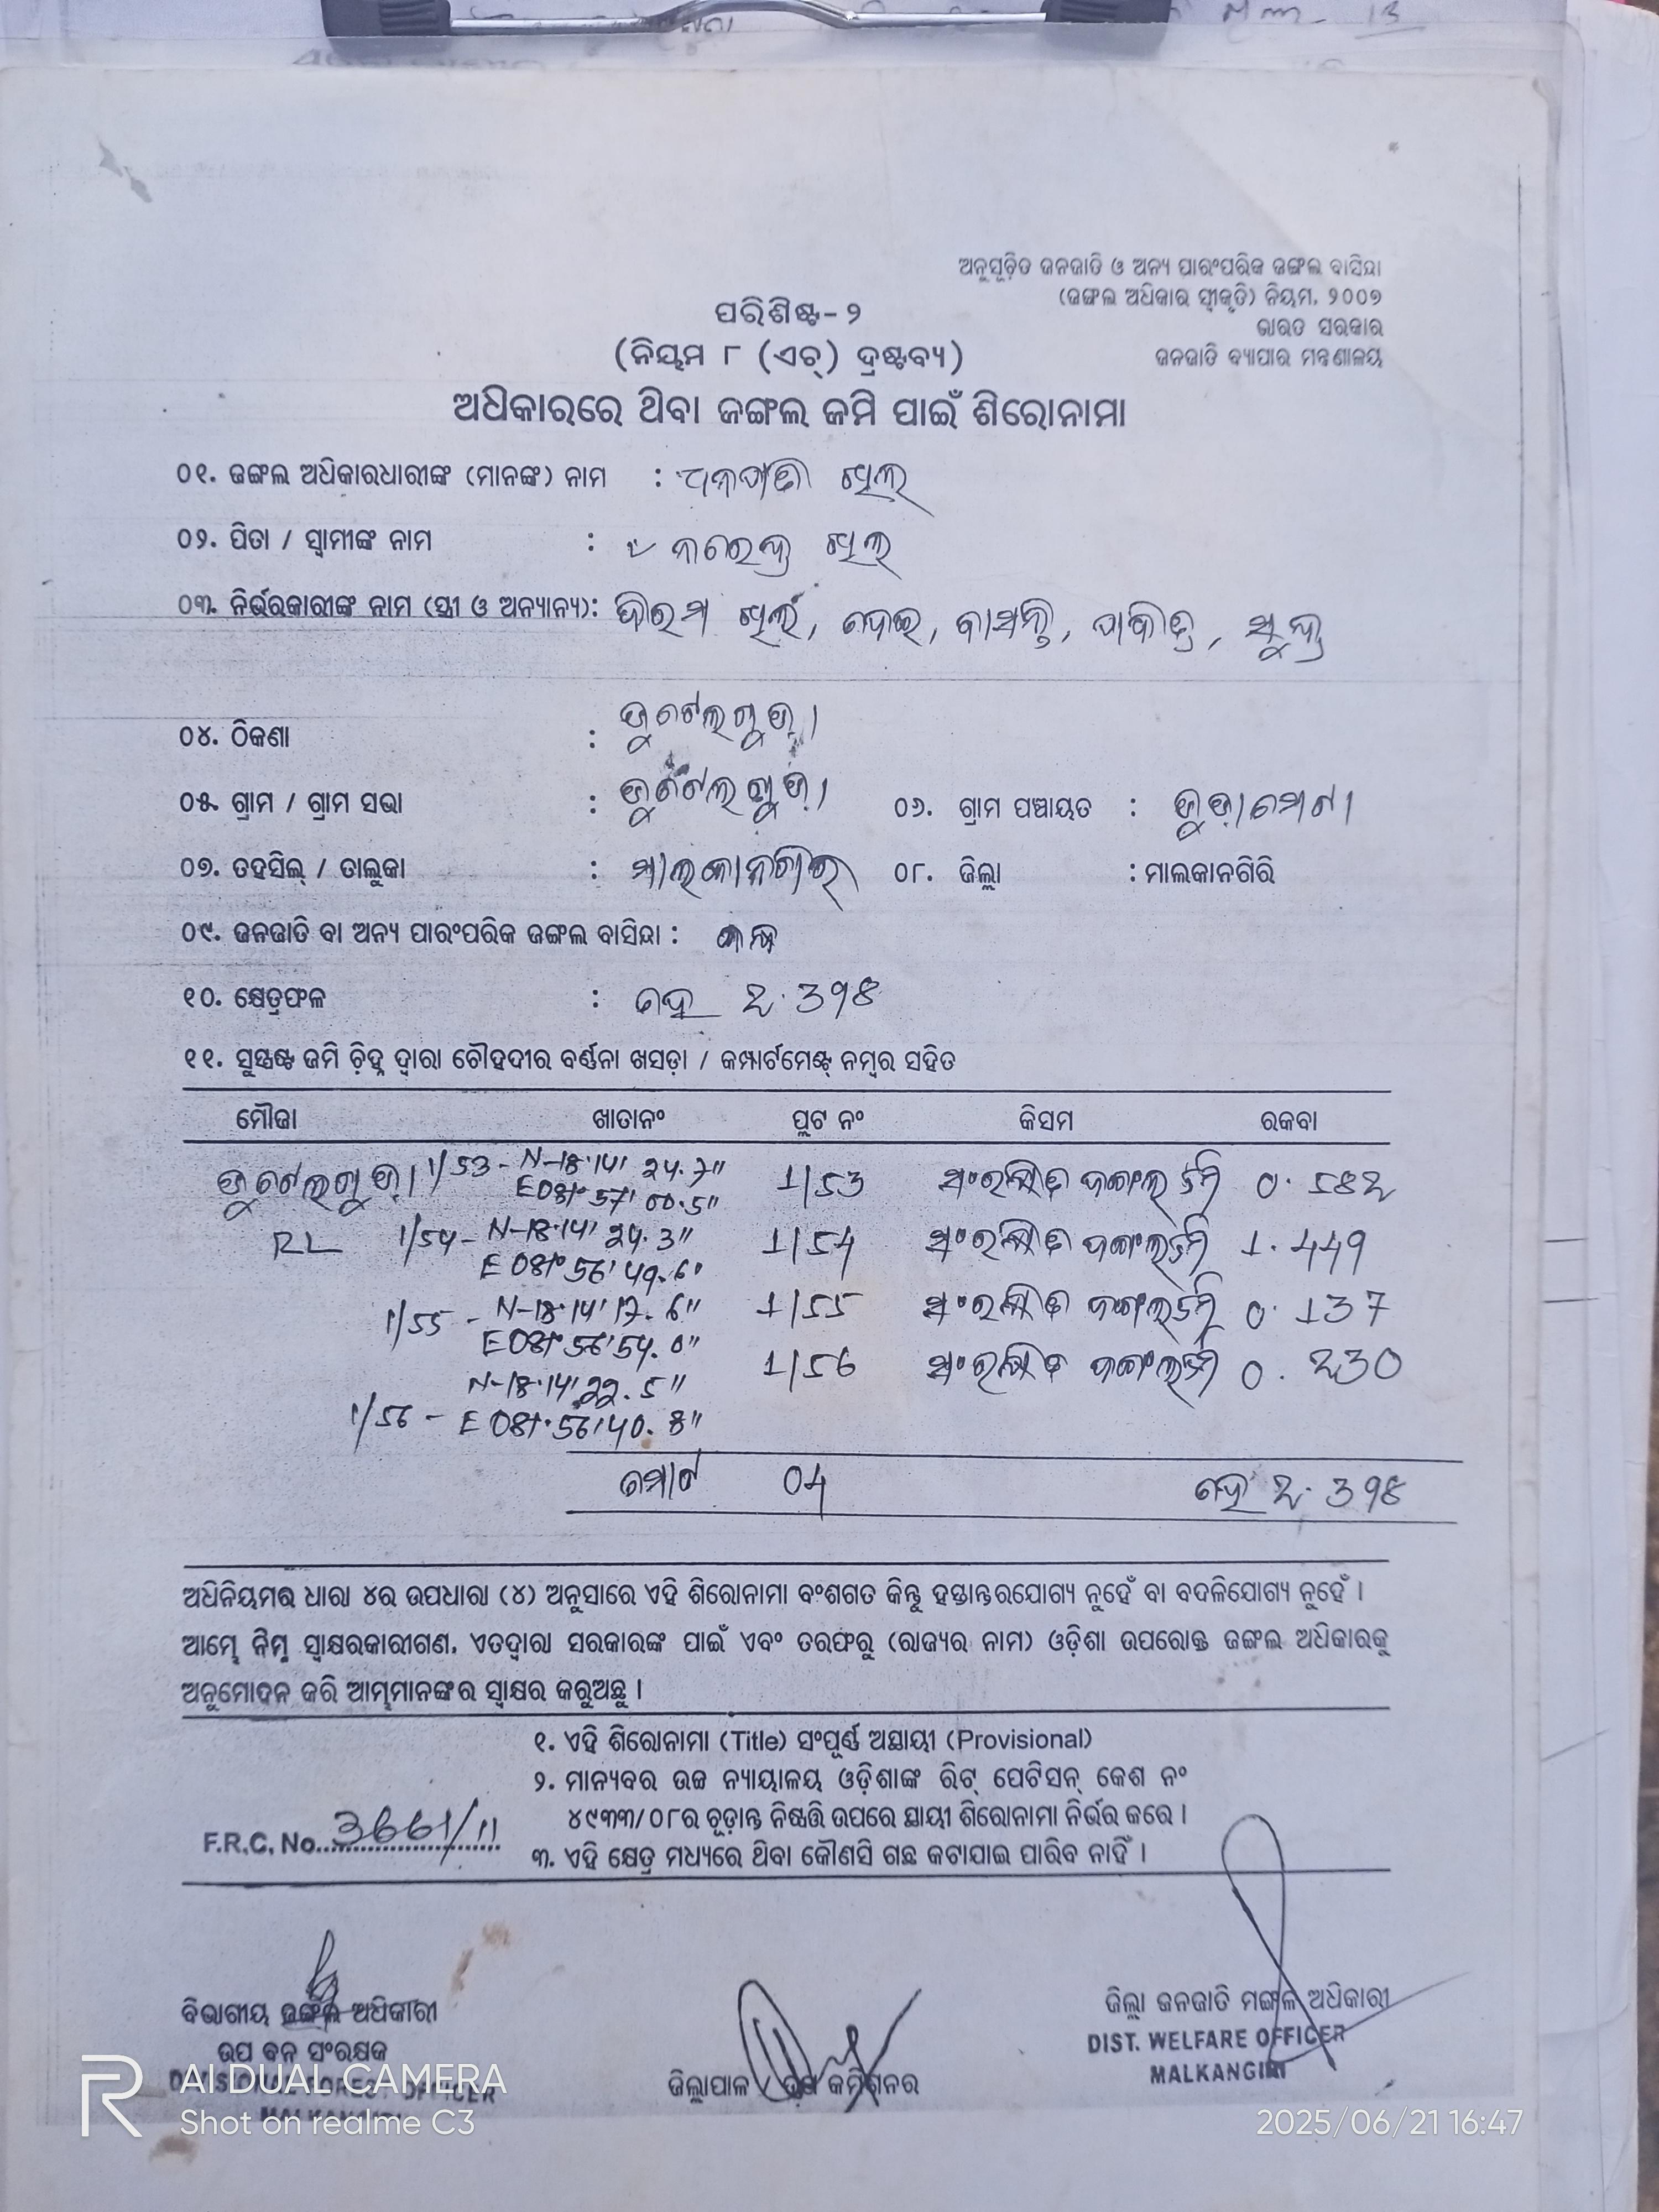 ଅନୁସୂଚିତ ଜନଜାତି ଓ ଅନ୍ୟ ପାରଂପରିକ ଜଙ୍ଗଲ ବାସିନ୍ଦା
(ଜଙ୍ଗଲ ଅଧିକାର ସ୍ୱୀକୃତି) ନିୟମ, ୨୦୦୭
ଭାରତ ସରକାର
ଜନଜାତି ବ୍ୟାପାର ମନ୍ତ୍ରଣାଳୟ
ପରିଶିଷ୍ଟ-୨
(ନିୟମ ୮ (ଏଚ୍) ଦ୍ରଷ୍ଟବ୍ୟ)
ଅଧିକାରରେ ଥିବା ଜଙ୍ଗଲ ଜମି ପାଇଁ ଶିରୋନାମା
୦୧. ଜଙ୍ଗଲ ଅଧିକାରଧାରୀଙ୍କ (ମାନଙ୍କ) ନାମ :
୦୨. ପିତା / ସ୍ୱାମୀଙ୍କ ନାମ : ନରେନ୍ଦ୍ର
୦୩. ନିର୍ଭରକାରୀଙ୍କ ନାମ (ସ୍ତ୍ରୀ ଓ ଅନ୍ୟାନ୍ୟ):
୦୪. ଠିକଣା :
୦୫. ଗ୍ରାମ / ଗ୍ରାମ ସଭା : ୦୬. ଗ୍ରାମ ପଞ୍ଚାୟତ :
୦୭. ତହସିଲ୍ / ତାଲୁକା : ମାଲକାନଗିରି ୦୮. ଜିଲ୍ଲା : ମାଲକାନଗିରି
୦୯. ଜନଜାତି ବା ଅନ୍ୟ ପାରଂପରିକ ଜଙ୍ଗଲ ବାସିନ୍ଦା :
୧୦. କ୍ଷେତ୍ରଫଳ : ହେ 2.398
୧୧. ସୁସ୍ପଷ୍ଟ ଜମି ଚିହ୍ନ ଦ୍ୱାରା ଚୌହଦୀର ବର୍ଣ୍ଣନା ଖସଡ଼ା / କମ୍ପାର୍ଟମେଣ୍ଟ୍ ନମ୍ବର ସହିତ
ମୌଜା ଖାତାନଂ ପ୍ଲଟ ନଂ କିସମ ରକବା
1/53 - N-18°14' 24.7" 1/53 ସଂରକ୍ଷିତ ଜଙ୍ଗଲ ଜମି 0.582
E 081°57' 00.5"
RL 1/54 - N-18°14' 24.3" 1/54 ସଂରକ୍ଷିତ ଜଙ୍ଗଲ ଜମି 1.449
E 081°56' 49.6"
1/55 - N-18°14' 17.6" 1/55 ସଂରକ୍ଷିତ ଜଙ୍ଗଲ ଜମି 0.137
E 081°56' 54.0"
N-18°14' 22.5" 1/56 ସଂରକ୍ଷିତ ଜଙ୍ଗଲ ଜମି 0.230
1/56 - E 081°56' 40.8"
ମୋଟ 04 ହେ 2.398
ଅଧିନିୟମର ଧାରା ୪ର ଉପଧାରା (୪) ଅନୁସାରେ ଏହି ଶିରୋନାମା ବଂଶଗତ କିନ୍ତୁ ହସ୍ତାନ୍ତରଯୋଗ୍ୟ ନୁହେଁ ବା ବଦଳିଯୋଗ୍ୟ ନୁହେଁ ।
ଆମ୍ଭେ ନିମ୍ନ ସ୍ୱାକ୍ଷରକାରୀଗଣ, ଏତଦ୍ୱାରା ସରକାରଙ୍କ ପାଇଁ ଏବଂ ତରଫରୁ (ରାଜ୍ୟର ନାମ) ଓଡ଼ିଶା ଉପରୋକ୍ତ ଜଙ୍ଗଲ ଅଧିକାରକୁ
ଅନୁମୋଦନ କରି ଆମ୍ଭମାନଙ୍କର ସ୍ୱାକ୍ଷର କରୁଅଛୁ ।
୧. ଏହି ଶିରୋନାମା (Title) ସଂପୂର୍ଣ୍ଣ ଅସ୍ଥାୟୀ (Provisional)
୨. ମାନ୍ୟବର ଉଚ୍ଚ ନ୍ୟାୟାଳୟ ଓଡ଼ିଶାଙ୍କ ରିଟ୍ ପେଟିସନ୍ କେଶ ନଂ
୪୯୩୩/୦୮ର ଚୂଡ଼ାନ୍ତ ନିଷ୍ପତ୍ତି ଉପରେ ସ୍ଥାୟୀ ଶିରୋନାମା ନିର୍ଭର କରେ ।
F.R.C. No. 3661/11
୩. ଏହି କ୍ଷେତ୍ର ମଧ୍ୟରେ ଥିବା କୌଣସି ଗଛ କଟାଯାଇ ପାରିବ ନାହିଁ ।
ବିଭାଗୀୟ ଜଙ୍ଗଲ ଅଧିକାରୀ
ଉପ ବନ ସଂରକ୍ଷକ
DIVISIONAL FOREST OFFICER
MALKANGIRI
ଜିଲ୍ଲାପାଳ / ଉପ କମିଶନର
ଜିଲ୍ଲା ଜନଜାତି ମଙ୍ଗଳ ଅଧିକାରୀ
DIST. WELFARE OFFICER
MALKANGIRI
AI DUAL CAMERA
Shot on realme C3
2025/06/21 16:47